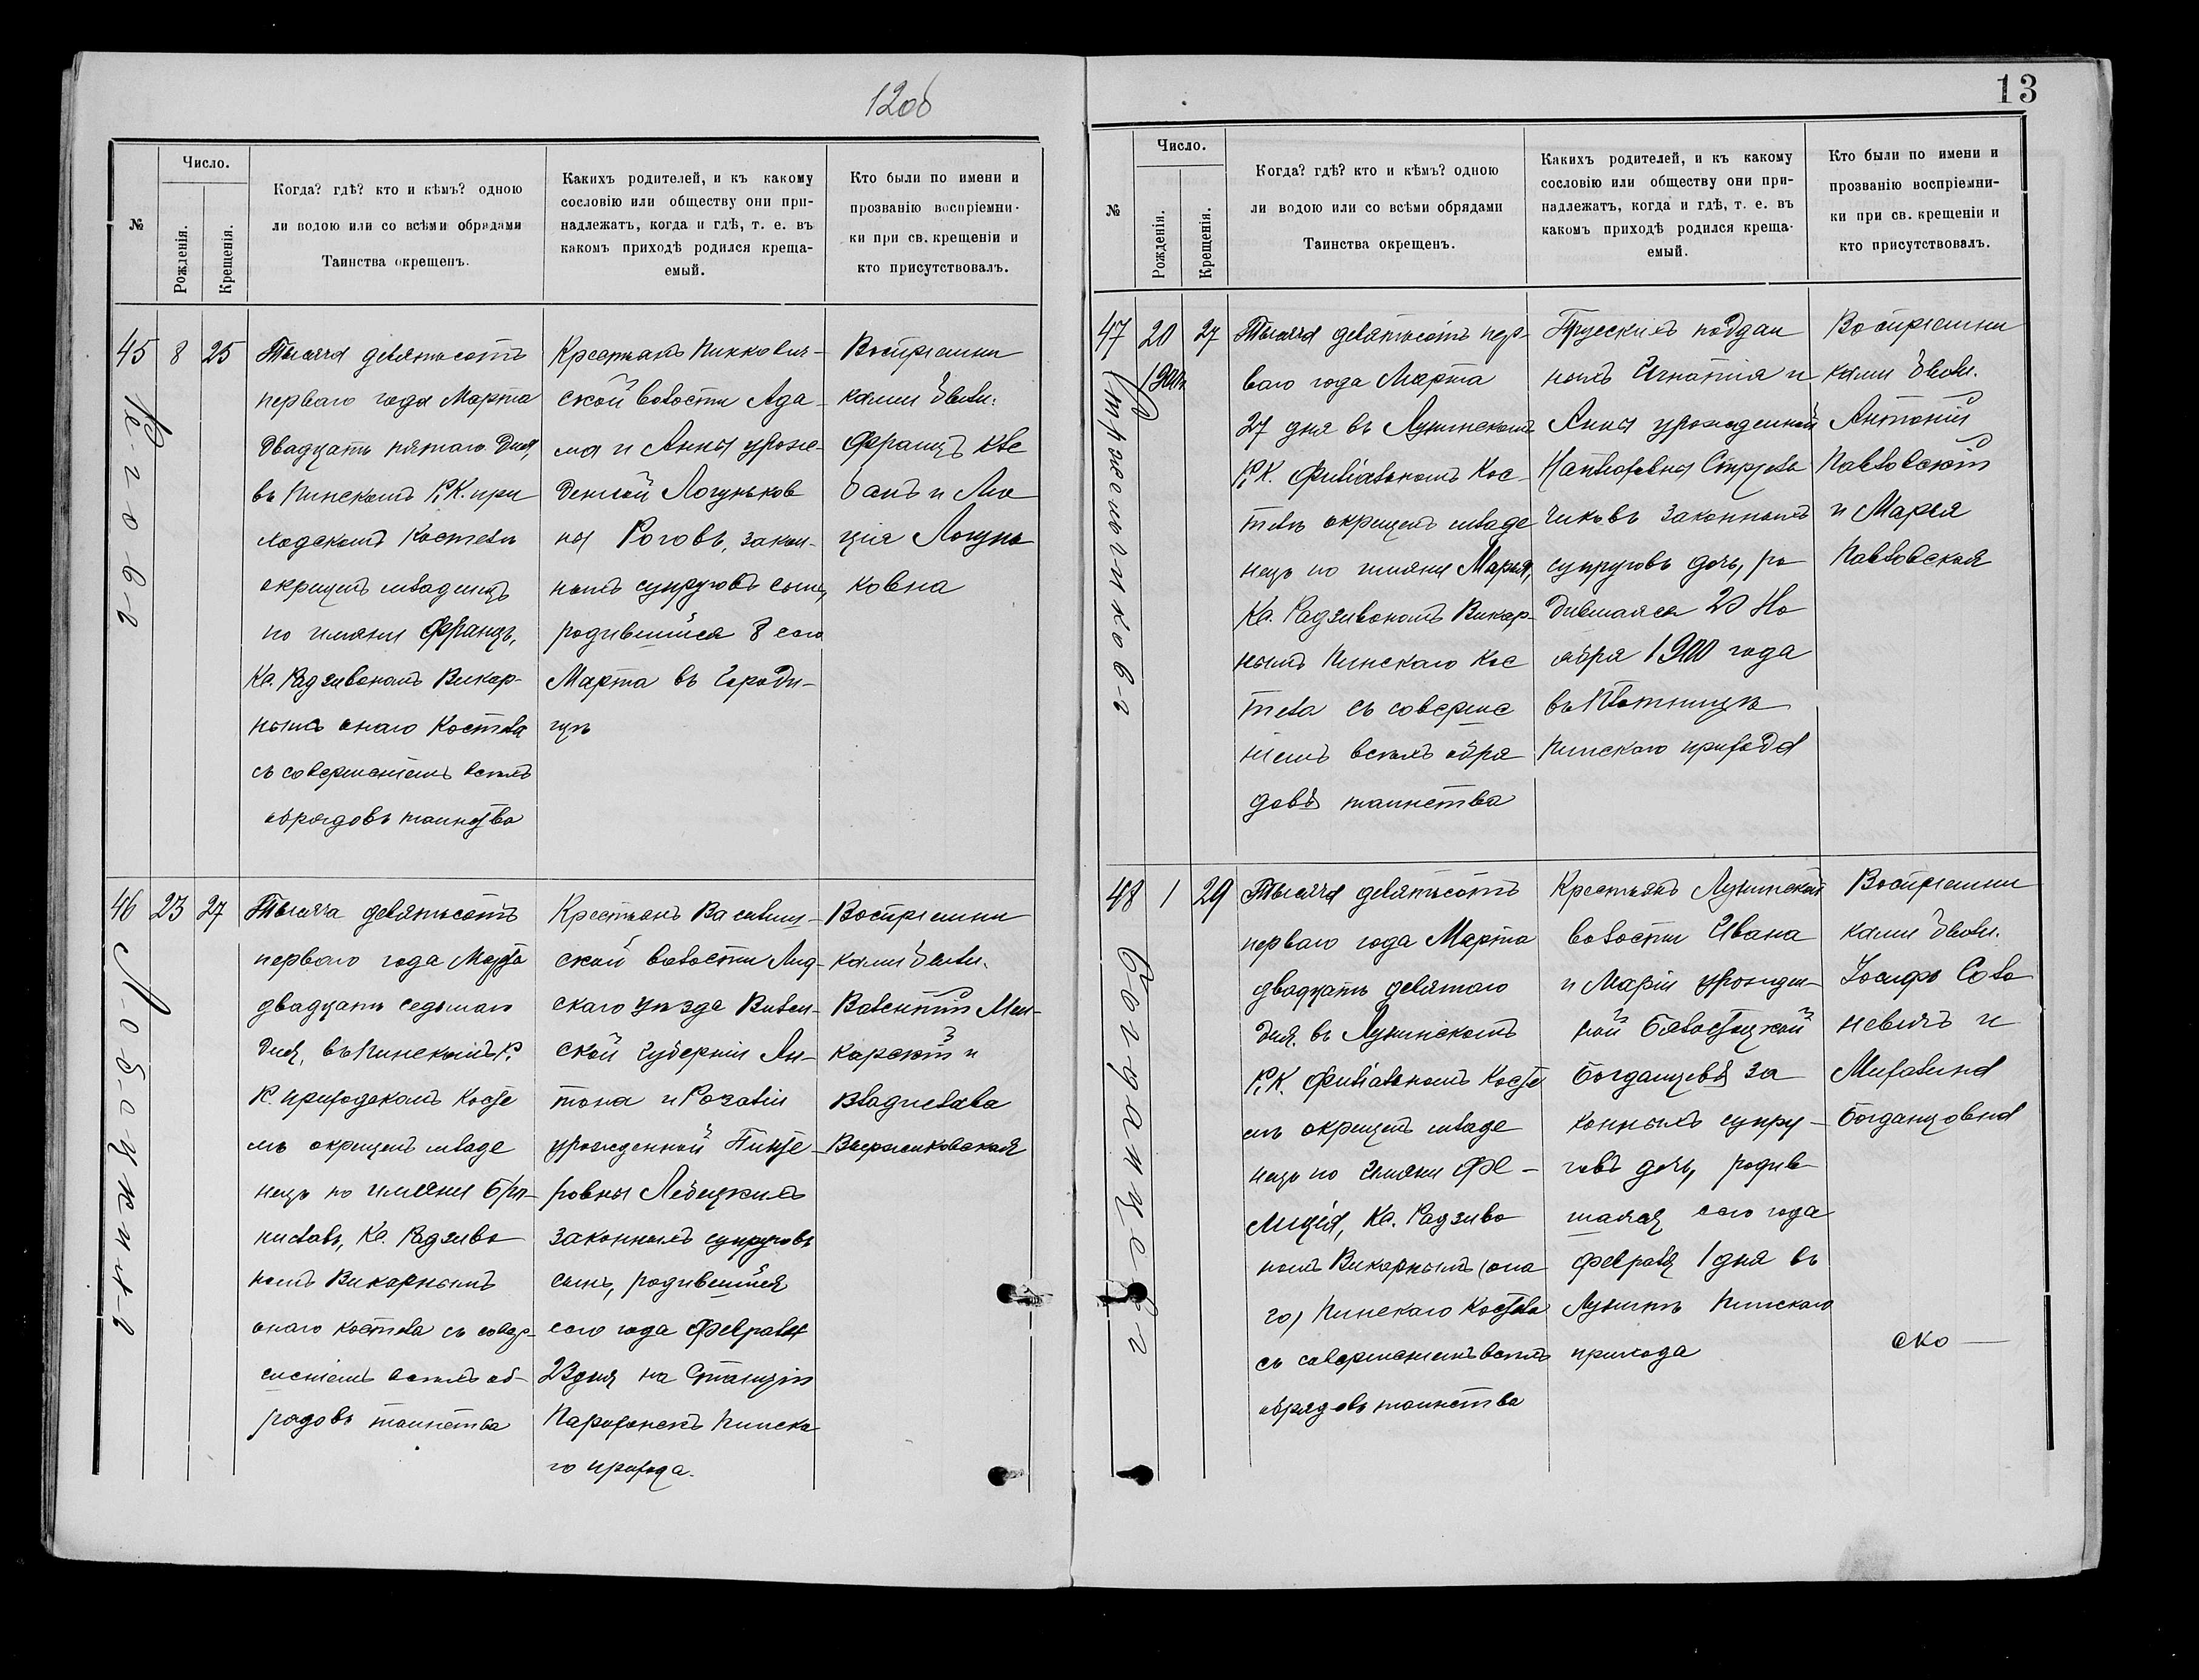 12об
№
Число.
Рожденія.
Крещенія.
Когда? гдѣ? кто и кѣмъ? одною
ли водою или со всѣми обрядами
Таинства окрещенъ.
Какихъ родителей, и къ какому
сословію или обществу они при-
надлежатъ, когда и гдѣ, т. е. въ
какомъ приходѣ родился креща-
емый.
Кто были по имени и
прозванію воспріемни-
ки при св. крещеніи и
кто присутствовалъ.
45
8
25
Рогов-г
Тысяча девятьсотъ
перваго года Марта
двадцать пятаго дня,
въ Пинскомъ Р.К. при
ходскомъ Костелѣ
окрещенъ младенецъ
по имяни Францъ,
Кс. Радзивономъ Викар-
нымъ онаго Костела
съ совершеніемъ всѣхъ
обрядовъ таинства
Крестьянъ Пинкович-
ской волости Ада-
ма и Анны урож-
денной Логуньков
ны Роговъ, закон-
ныхъ супруговъ сынъ,
родившійся 8 сего
Марта въ Городи-
щѣ
Воспріемни
ками были:
Францъ Кле
банъ и Лю
ція Логунь
ковна
46
23
27
Лобецкий-г
Тысяча девятьсотъ
перваго года Марта
двадцать седьмаго
дня, въ Пинскомъ Р.
К. приходскомъ Косте
лѣ окрещенъ младе
нецъ по имяни Бро-
ниславъ, Кс. Радзиво
номъ Викарнымъ
онаго костела съ совер-
шеніемъ всѣхъ об-
рядовъ таинства
Крестьянъ Василиш-
ской волости Лид-
скаго уѣзда Вилен-
ской Губерніи Ан-
тона и Розаліи
урожденной
ровны Лебецкихъ
законныхъ супруговъ
сынъ, родившійся
сего года Февраля
23 дня на Станціи
Парохонскъ Пинска
го прихода.
Воспріемни
ками были.
Валентій Мен-
карскій и
Владислава
Вержиковская
13
№
Число.
Рожденія.
Крещенія.
Когда? гдѣ? кто и кѣмъ? одною
ли водою или со всѣми обрядами
Таинства окрещенъ.
Какихъ родителей, и къ какому
сословію или обществу они при-
надлежатъ, когда и гдѣ, т. е. въ
какомъ приходѣ родился креща-
емый.
Кто были по имени и
прозванію воспріемни-
ки при св. крещеніи и
кто присутствовалъ.
47
20
1900г.
27
Стрельчиков-г
Тысяча девятьсотъ пер-
ваго года Марта
27 дня въ Лунинскомъ
Р.К. Филіальномъ Кос-
телѣ окрещенъ младе
нецъ по имяни Марья,
Кс. Радзивономъ Викар-
нымъ Пинскаго Кос
тела съ соверше
ніемъ всѣхъ обря
довъ таинства
Прусскихъ поддан
ныхъ Игнатія и
Анны урожденной
законныхъ
супруговъ дочь, ро
дившаяся 20 Но
ября 1900 года
въ Плотницѣ
Пинскаго прихода
Воспріемни
ками были.
Антоній
Павловскій
и Марья
Павловская
48
1
29
Богданцев-г
Тысяча девятьсотъ
перваго года Марта
двадцать девятаго
дня. въ Лунинскомъ
Р.К. Филіальномъ Косте
лѣ окрещенъ младе
нецъ по имяни Фе-
лиція, Кс. Радзиво
номъ Викарнымъ (она
го) Пинскаго Костела
съ совершеніемъ всѣхъ
обрядовъ таинства
Крестьянъ Лунинской
волости Ивана
и Маріи урожден-
ной Бялостоцкой
Богданцевъ за
конныхъ супру-
говъ дочь, родив-
шаяся сего года
Февраля 1 дня въ
Лунинѣ Пинскаго
прихода
Воспріемни
ками были.
Іосифъ Соло
невичъ и
Михалина
Богданцовна
ско —